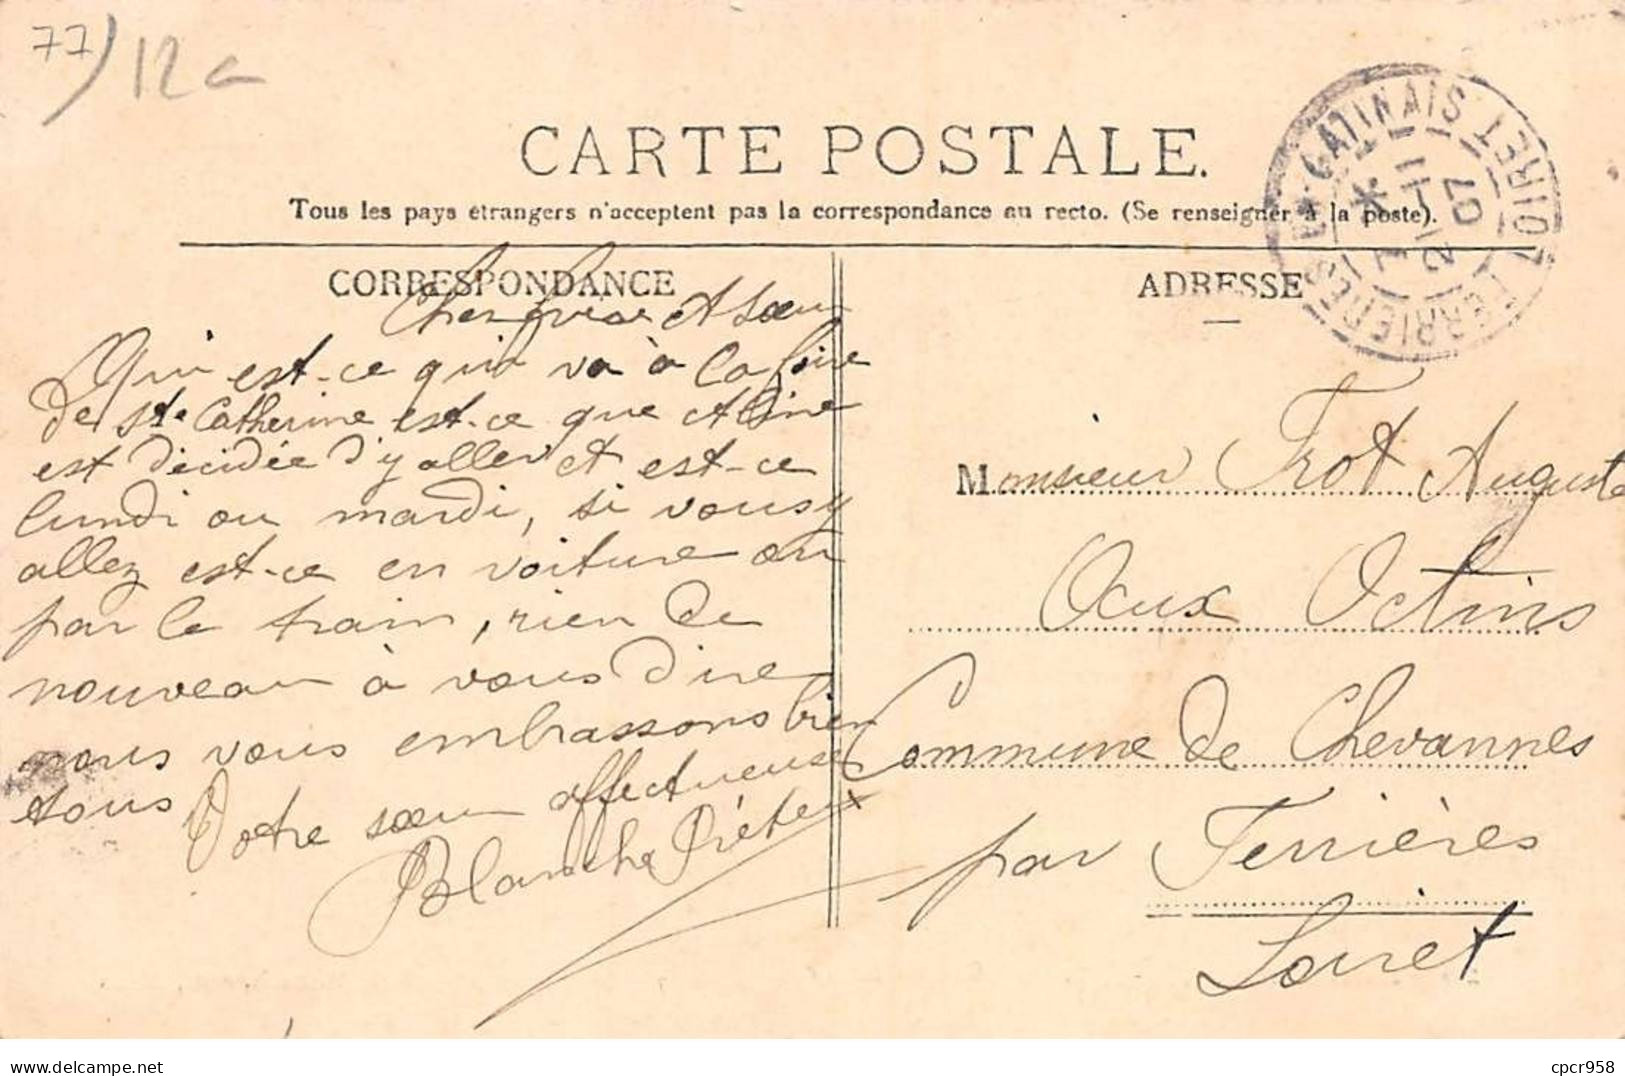 77) 12
CARTE POSTALE.
Tous les pays étrangers n'acceptent pas la correspondance au recto. (Se renseigner à la poste).
CORRESPONDANCE
Cher frère et soeur
Qui est-ce qui va à la foire
de Ste Catherine est-ce que Aline
est décidée d'y aller et est-ce
lundi ou mardi, si vous y
allez est-ce en voiture ou
par le train, rien de
nouveau à vous dire
nous vous embrassons bien
tous
Votre soeur affectueuse
Blanche
ADRESSE
Monsieur Trot Auguste
Aux Octins
Commune de Chevannes
par Ferrières
Loiret
FERRIERES EN GATINAIS LOIRET
21 -11
07
www.delcampe.net
cpcr958